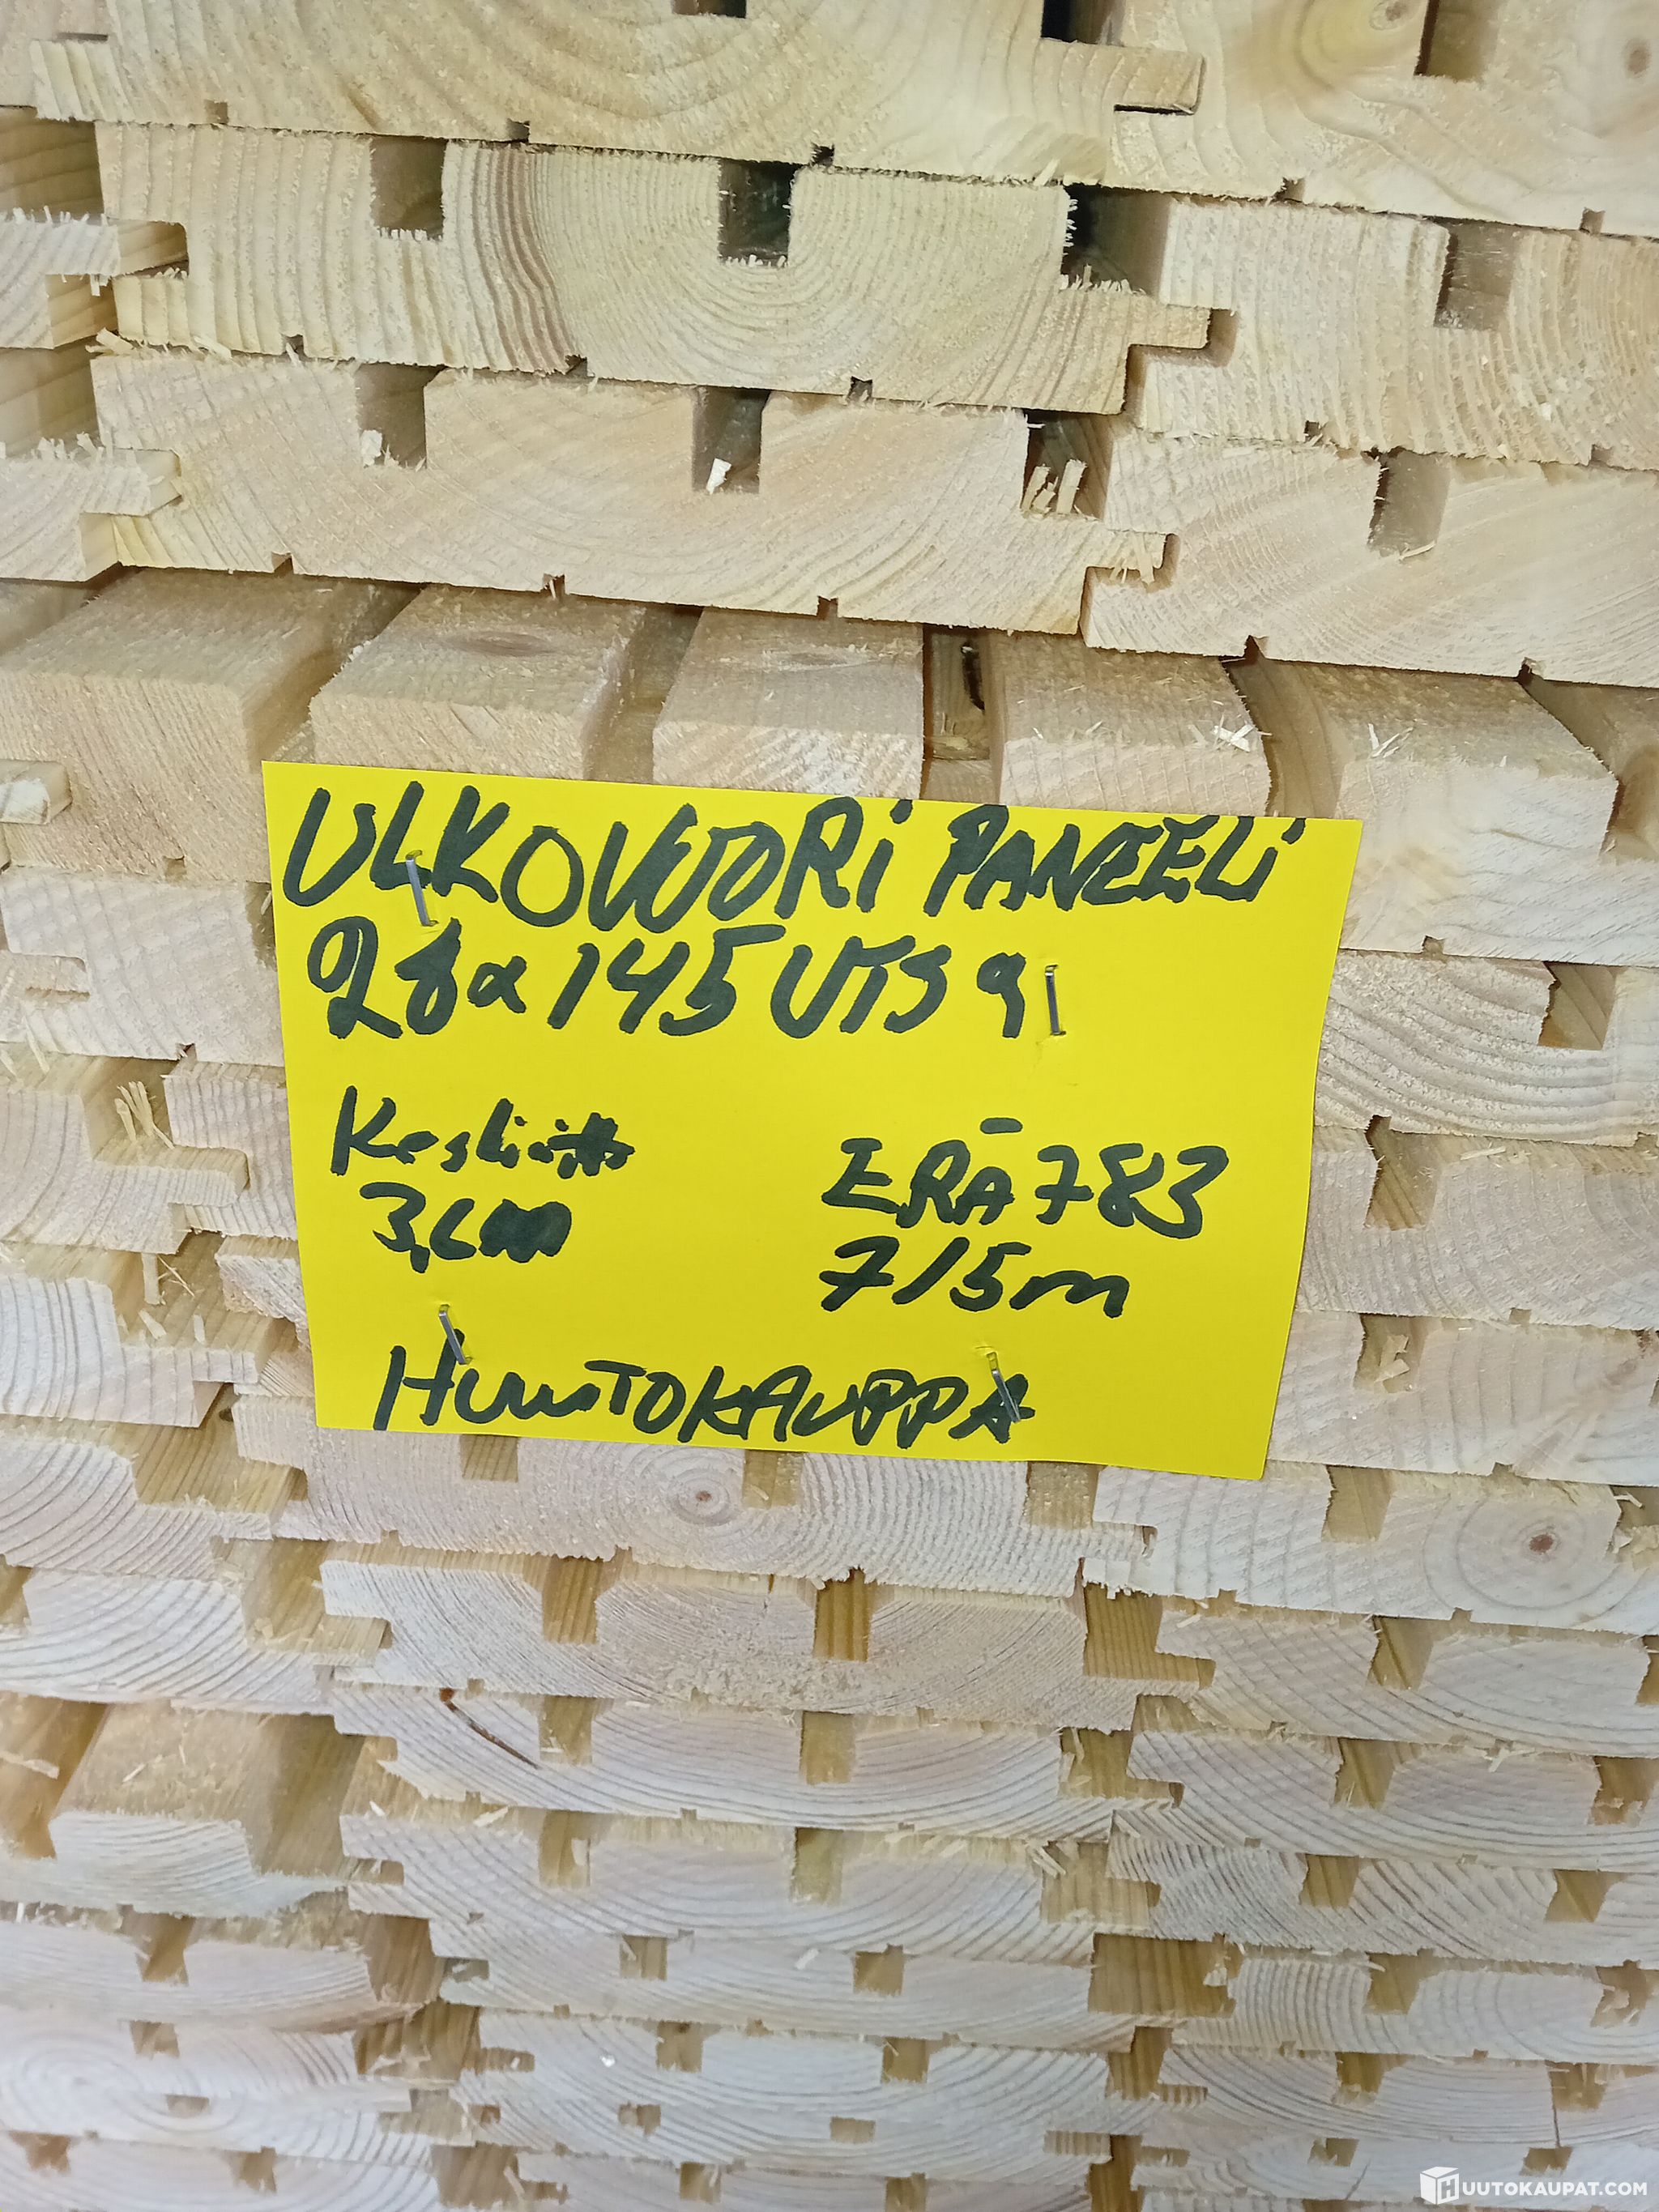 ULKOVUORI PANEELI
28x145 UTS 9
3,6m
ERÄ 783
715m
HUUTOKAUPPA
HUUTOKAUPAT.COM